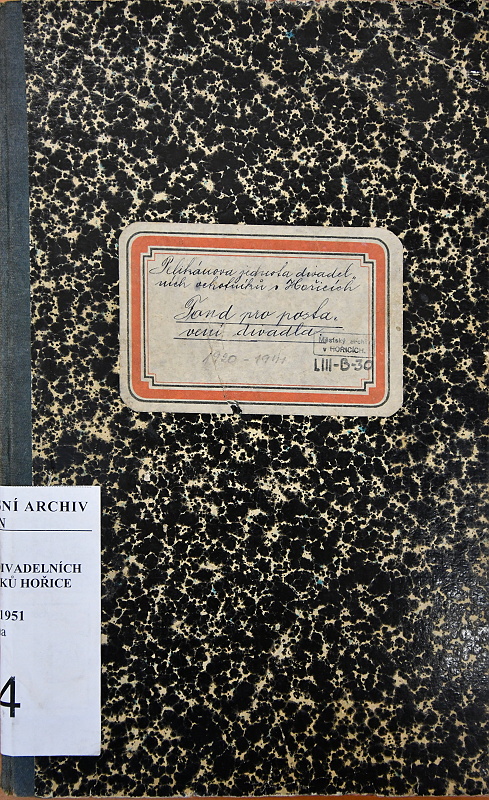 Pelikánova jednota divadel-
ních ochotníků v Hořicích
Fond pro posta-
vení divadla.
Městský archiv
v HOŘICÍCH.
LIII-B-30
1930 - 1941
NÍ ARCHIV
N
IVADELNÍCH
KŮ HOŘICE
1951
a
4